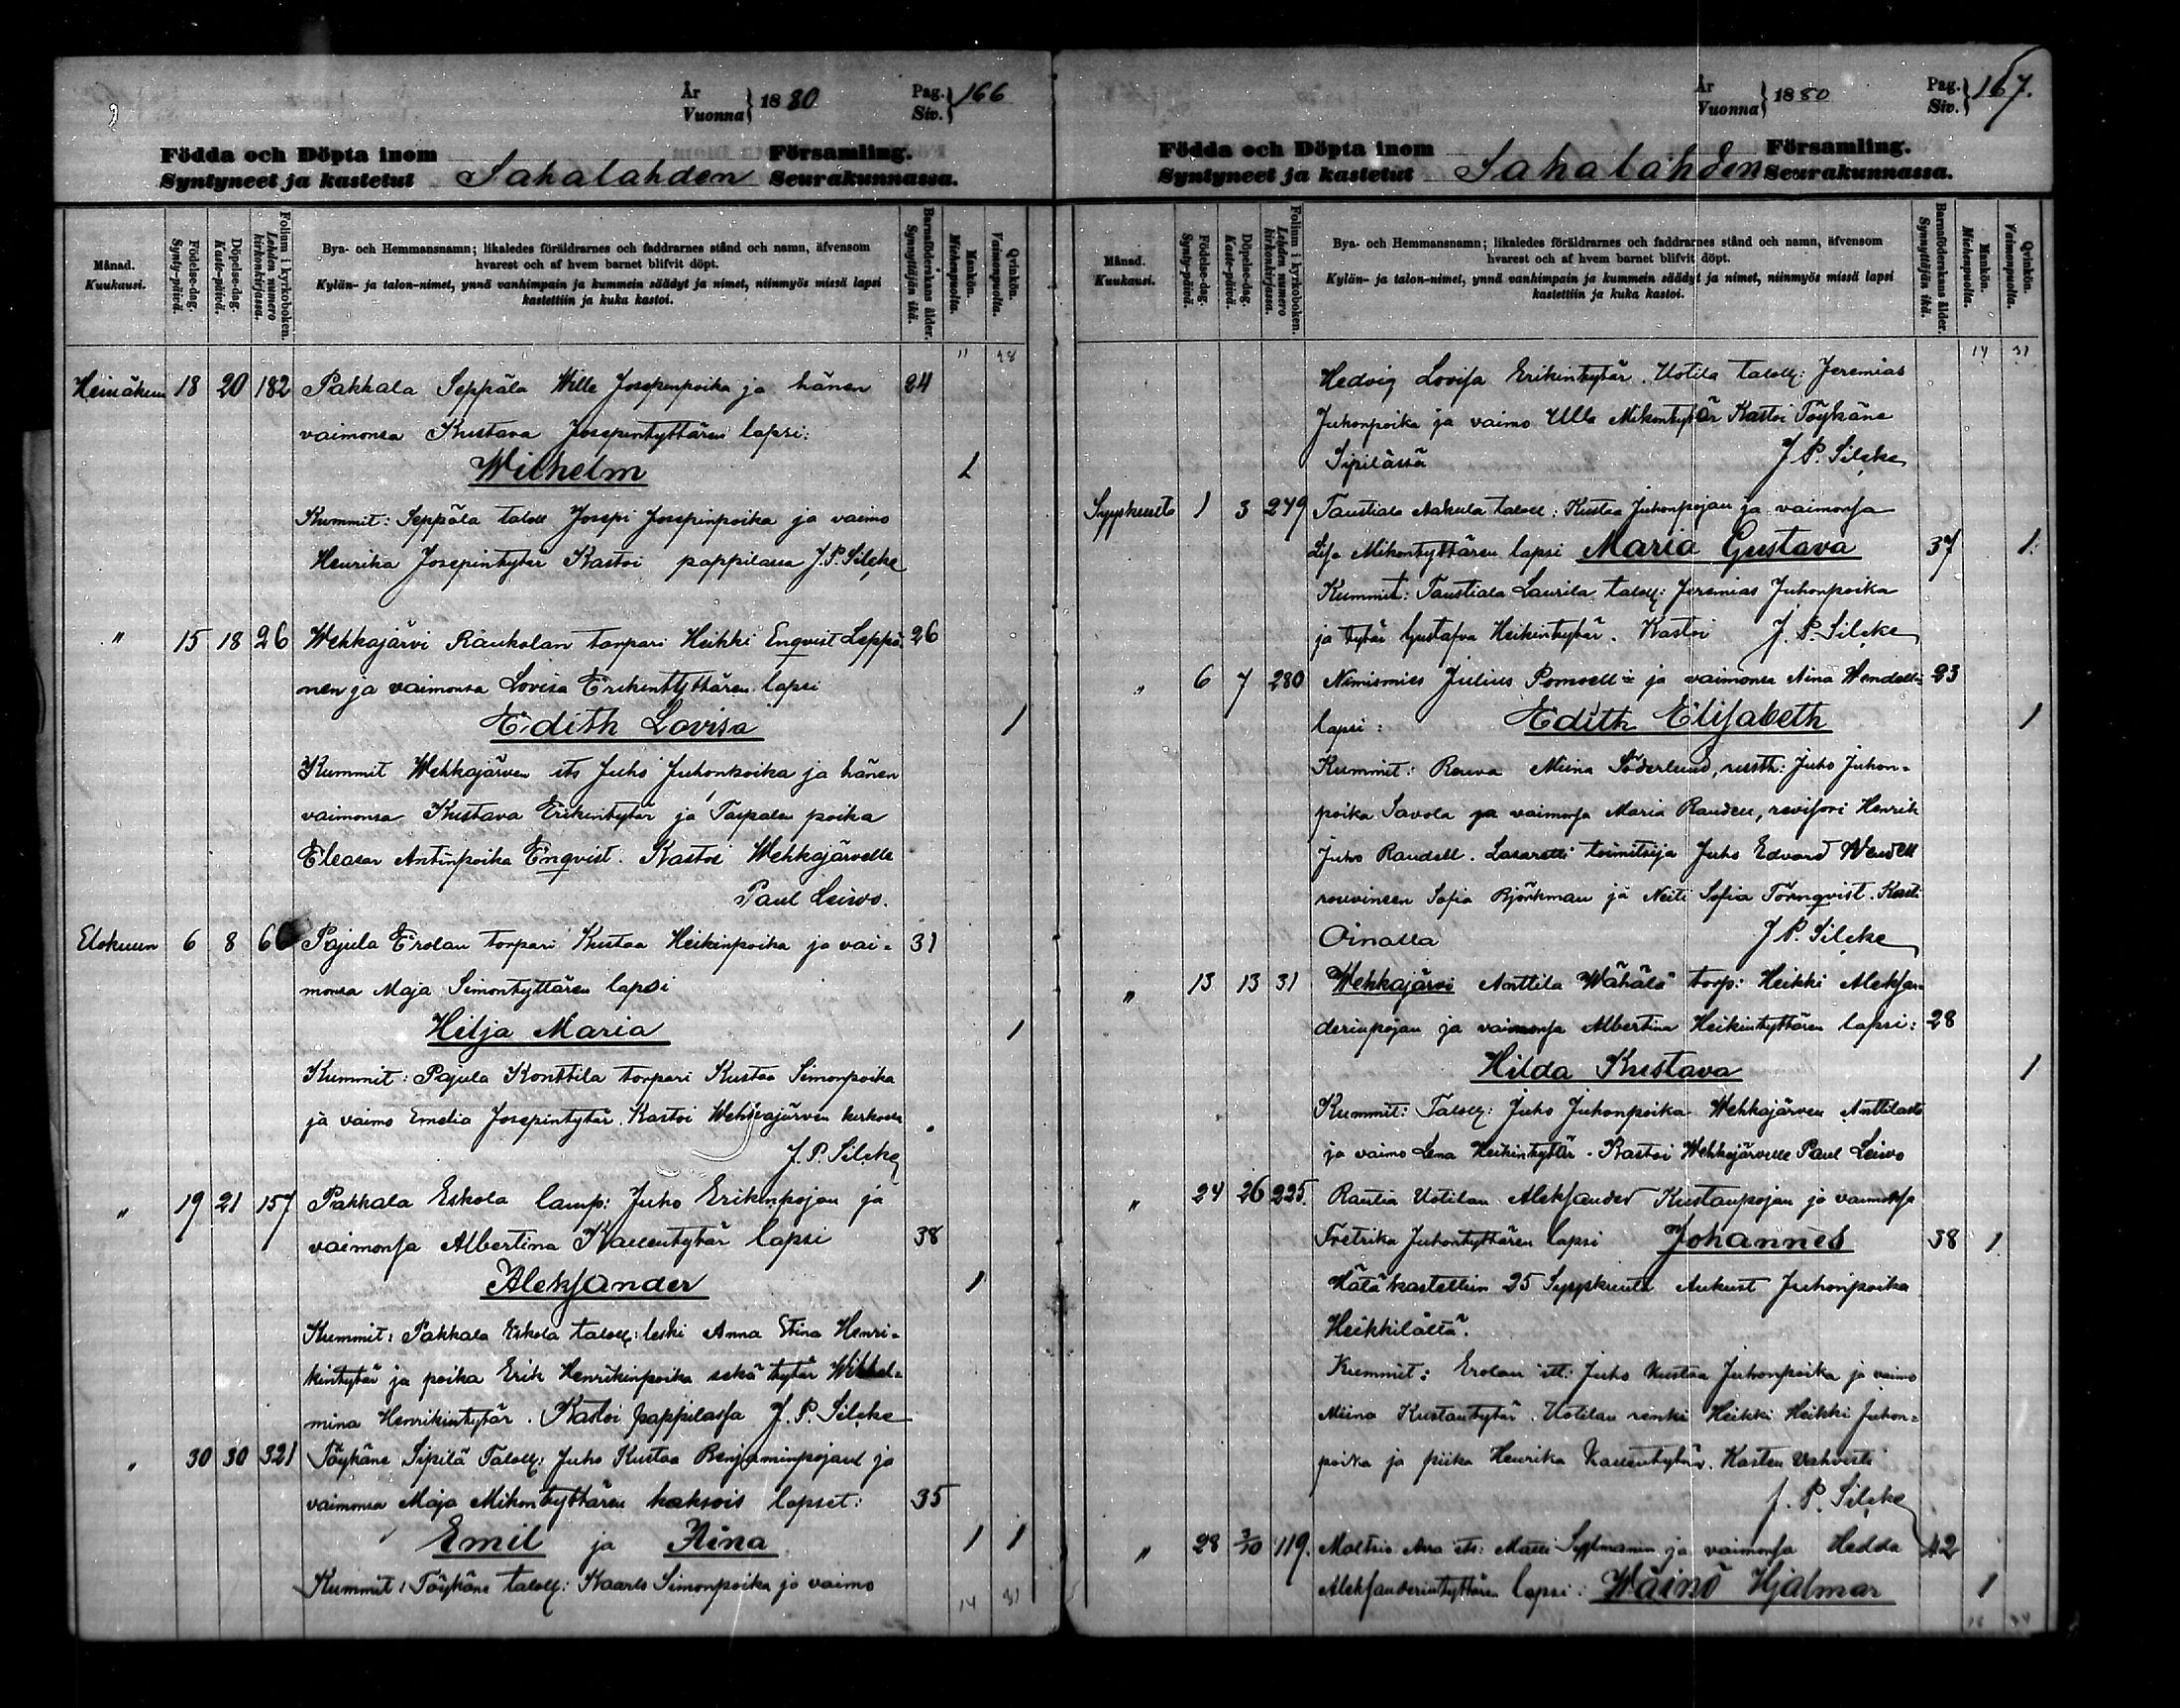 År
Vuonna } 1880
Pag.
Siv. } 166
Födda och Döpta inom Församling.
Syntyneet ja kastetut Sahalahden Seurakunnassa.
Månad.
Kuukausi.
Födelse-dag.
Synty-päivä.
Döpelse-dag.
Kaste-päivä.
Folium i kyrkoboken.
Lehden numero kirkonkirjassa.
Bya- och Hemmansnamn; likaledes föräldrarnes och faddrarnes stånd och namn, äfvensom
hvarest och af hvem barnet blifvit döpt.
Kylän- ja talon-nimet, ynnä vanhimpain ja kummein säädyt ja nimet, niinmyös missä lapsi
kastettiin ja kuka kastoi.
Barnaföderskans ålder.
Synnyttäjän ikä.
Mankön.
Miehenpuolta.
Qvinkön.
Vaimonpuolta.
11 28
Heinäkuu 18 20 182 Pakkala Seppäla Wille Josepinpoika ja hänen 24
vaimonsa Kustava Josepintyttären lapsi:
Wilhelm 1
Kummit: Seppäla taloll Josepi Josepinpoika ja vaimo
Henrika Josepintytär Kastoi pappilassa J. P. Silcke
" 15 18 26 Wehkajärvi Raukolan torpari Heikki Enqvist Leppä- 26
nen ja vaimonsa Lovisa Erikintyttären lapsi
Edith Lovisa 1
Kummit Wehkajärven its Juho Juhonpoika ja hänen
vaimonsa Kustava Erikintytär ja Taipalen poika
Eleasar Antinpoika Enqvist. Kastoi Wehkajärvelle
Paul Leivo.
Elokuun 6 8 66 Pajula Erolan torpari Kustaa Heikinpoika ja vai- 31
monsa Maja Simontyttären lapsi
Hilja Maria 1
Kummit: Pajula Konttila torpari Kustaa Simonpoika
ja vaimo Emelia Josepintytär. Kastoi Wehkajärven kirkossa
J. P. Silcke
" 19 21 157 Pakkala Eskola lamp: Juho Erikinpojan ja
vaimonsa Albertina Kallentytär lapsi 38
Aleksander 1
Kummit: Pakkala Eskola taloll: leski Anna Stina Henri-
kintytär ja poika Erik Henrikinpoika sekä tytär Wilhel-
mina Henrikintytär. Kastoi pappilassa J. P. Silcke
" 30 30 321 Töykäne Sipilä Taloll: Juho Kustaa Benjaminpojan ja
vaimonsa Maja Mikontyttären kaksois lapset: 35
Emil ja Fiina 1 1
Kummit: Töykäne taloll: Kaarlo Simonpoika ja vaimo
14 31
År
Vuonna } 1880
Pag.
Siv. } 167.
Födda och Döpta inom Församling.
Syntyneet ja kastetut Sahalahden Seurakunnassa.
Månad.
Kuukausi.
Födelse-dag.
Synty-päivä.
Döpelse-dag.
Kaste-päivä.
Folium i kyrkoboken.
Lehden numero kirkonkirjassa.
Bya- och Hemmansnamn; likaledes föräldrarnes och faddrarnes stånd och namn, äfvensom
hvarest och af hvem barnet blifvit döpt.
Kylän- ja talon-nimet, ynnä vanhimpain ja kummein säädyt ja nimet, niinmyös missä lapsi
kastettiin ja kuka kastoi.
Barnaföderskans ålder.
Synnyttäjän ikä.
Mankön.
Miehenpuolta.
Qvinkön.
Vaimonpuolta.
14 31
Hedvig Lovisa Erikintytär. Uotila taloll: Jeremias
Juhonpoika ja vaimo Ulla Mikontytär Kastoi Töykäne
Sipilässä J. P. Silcke
Syyskuuta 1 3 249 Taustiala Aakula taloll: Kustaa Juhonpojan ja vaimonsa
Lisa Mikontyttären lapsi Maria Gustava 37 1
Kummit: Taustiala Laurila taloll: Jeremias Juhonpoika
ja tytär Gustafva Heikintytär. Kastoi J. P. Silcke
" 6 7 280 Nimismies Julius ja vaimonsa Aina 23
lapsi: Edith Elisabeth 1
Kummit: Rouva Miina Söderlund, rusth: Juho Juhon-
poika Savola ja vaimonsa Maria Randell, revisori Henrik
Juho Randell. Lasaretti toimitsija Juho Edvard Wendell
rouvineen Sofia Björkman ja Neiti Sofia Törnqvist. Kasti
Oinalla J. P. Silcke
" 13 13 31 Wehkajärvi Anttila Wähälä torp: Heikki Aleksan-
derinpojan ja vaimonsa Albertina Heikintyttären lapsi: 28
Hilda Kustava 1
Kummit: Taloll: Juho Juhonpoika Wehkajärven Anttilasta
ja vaimo Lena Heikintytär. Kastoi Wehkajärvelle Paul Leivo
" 24 26 225. Rautia Uotilan Aleksander Kustaanpojan ja vaimonsa
Fretrika Juhontyttären lapsi Johannes 38 1
Hätä kastettiin 25 Syyskuuta Aukust Juhonpoika
Heikkilältä.
Kummit: Erolan itl: Juho Kustaa Juhonpoika ja vaimo
Miina Kustantytär. Uotilan renki Heikki Heikki Juhon-
poika ja piika Henrika Kallentytär. Kasten Vahvisti
J. P. Silcke
" 28 3/10 119. Moltsia its: Matti ja vaimonsa Hedda 42
Aleksanderintyttären lapsi: Wäinö Hjalmar 1